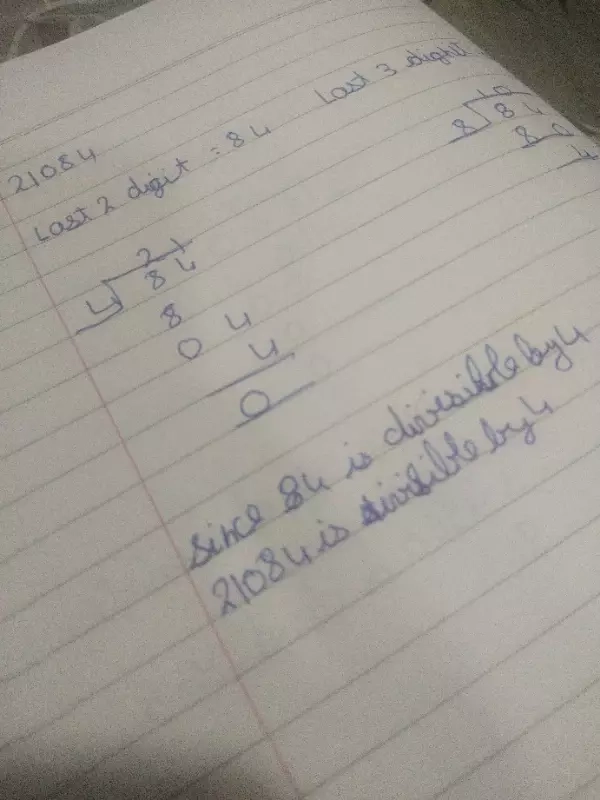 21084
Last 2 digit = 84
21
4 84
8
0 4
4
0
since 84 is divisible by 4
21084 is divisible by 4
Last 3 digit
10
8 84
80
4